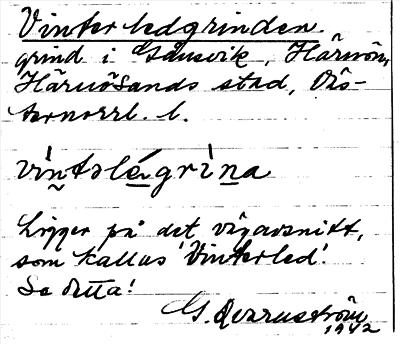 Vinterledgrinden
grind i Gånsvik, Härnön,
Härnösands stad, Väs-
ternorrl. l.
vìntəlégrìna
Ligger på det vägavsnitt,
som kallas 'Vinterled'.
Se detta!
G. Qvarnström
1942